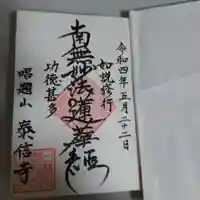 令和四年五月二十二日
如説修行
南無妙法蓮華経
功徳甚多
唱題山 蓑信寺